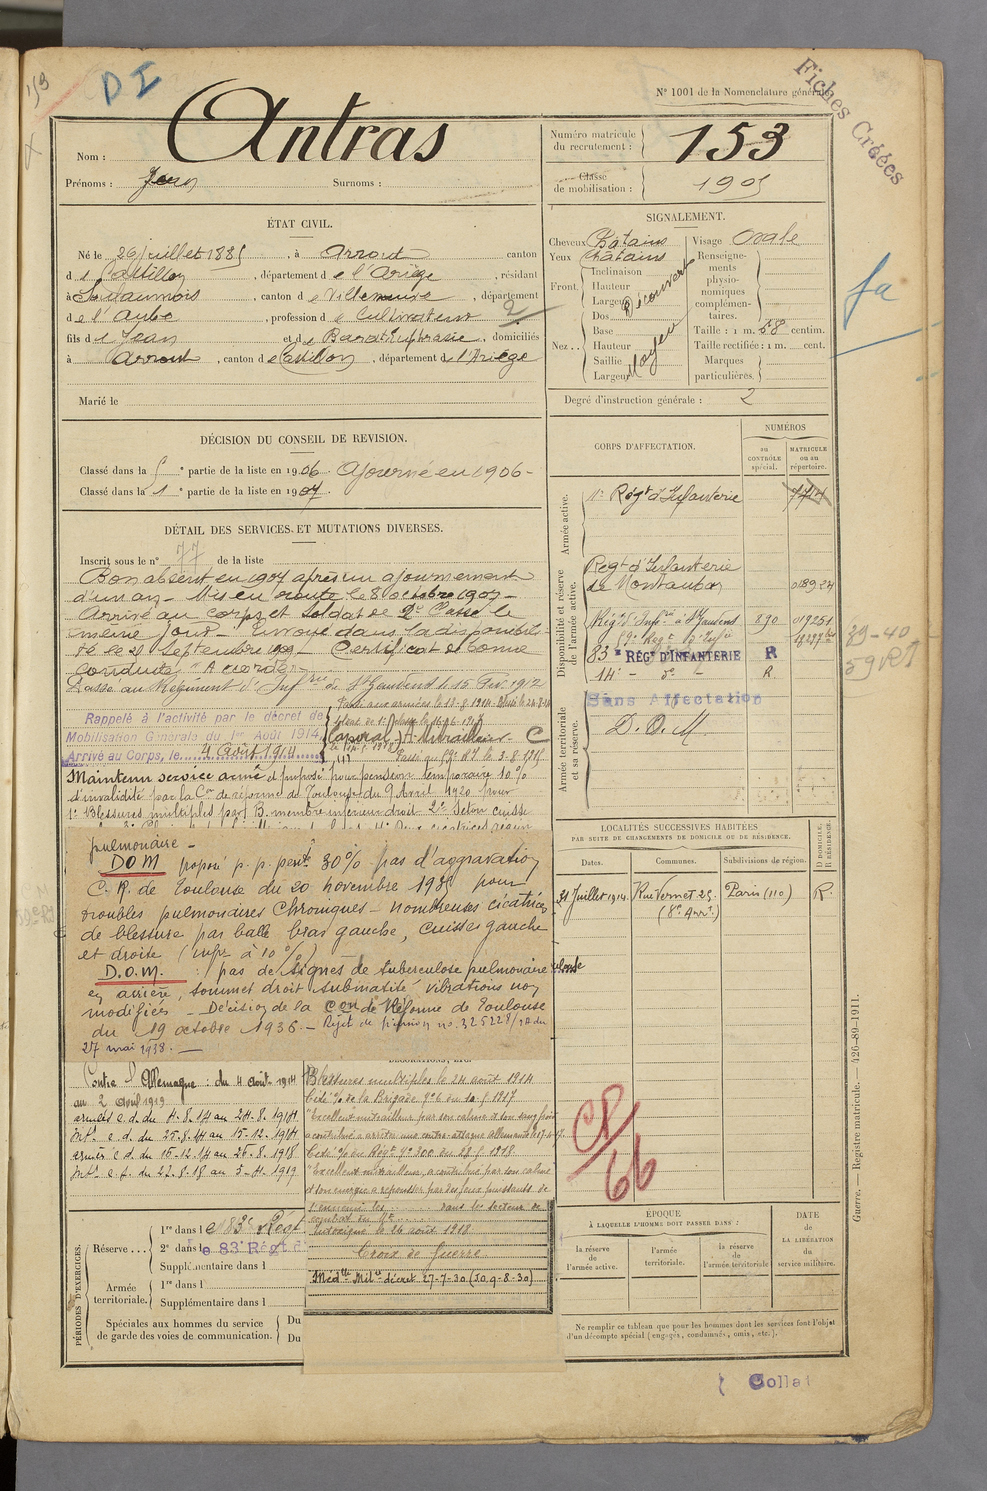 153
D I
N° 1001 de la Nomenclature générale
Fiches Créées
Nom : Antras
Prénoms : Jean Surnoms :
Numéro matricule du recrutement : 153
Classe de mobilisation : 1905
ÉTAT CIVIL.
Né le 26 juillet 1885, à Arrout canton
d e Castillon, département d e l'Ariège, résidant
à, canton d e, département
d e l'Aube, profession d e Cultivateur
2
fils d e Jean et d e Barat Euphrasie, domiciliés
à Arrout, canton d e Castillon, département d e l'Ariège
Marié le
SIGNALEMENT.
Cheveux Châtains Visage Ovale
Yeux Châtains Renseignements physionomiques complémentaires.
Front. Inclinaison Hauteur Largeur Découvert
Nez.. Dos Base Hauteur Saillie Largeur Moyen
Taille : 1 m. 58 centim.
Taille rectifiée : 1 m. cent.
Marques particulières.
Degré d'instruction générale : 2
fa
DÉCISION DU CONSEIL DE REVISION.
Classé dans la 5e partie de la liste en 1906 Ajourné en 1906-
Classé dans la 1e partie de la liste en 1907.
DÉTAIL DES SERVICES ET MUTATIONS DIVERSES.
Inscrit sous le n° 77 de la liste
Bon absent en 1907 après un ajournement
d'un an - Mis en route le 8 octobre 1907 -
Arrivé au corps et Soldat de 2e Classe le
même jour - Envoyé dans la disponibili-
té le 28 Septembre 1909 - Certificat de bonne
conduite "Accordé"
Passé au Régiment d'Infrie de St Gaudens le 15 Fév. 1912
Rappelé à l'activité par le décret de
Mobilisation Générale du 1er Août 1914.
Arrivé au Corps, le 4 Août 1914
Passé aux armées le 11-8-1914. Blessé le 24-8-14
Soldat de 1e classe le 16-6-1917
Caporal
Maintenu service armé et proposé pour pension temporaire 10%
d'invalidité par la Con de réforme de Toulouse du 9 Avril 1920 pour
1° Blessures multiples par B. membre inférieur droit 2° Séton cuisse
pulmonaire -
DOM proposé p. p. pente 30% pas d'aggravation
C. R. de Toulouse du 20 novembre 1935 pour
troubles pulmonaires chroniques - nombreuses cicatrices
de blessure par balle bras gauche, cuisses gauche
et droite (infr à 10%)
D.O.M. : pas de signes de tuberculose pulmonaire
en arrière, sommet droit submatité vibrations non
modifiées - Décision de la Con de Réforme de Toulouse
du 19 octobre 1936. - Rejet de pension no. 325228/ du
27 mai 1938. -
Contre l'Allemagne : du 4 Août 1914
au 2 Avril 1919
armées c.d. du 11.8.14 au 24.8.1914
Intr c.d. du 25.8.14 au 15-12.1914
armées c.d. du 16-12-14 au 26-8.1918
Intr c.f. du 22.8.18 au 5-4.1919
DÉCORATIONS, ETC.
Blessures multiples le 24 août 1914
"Excellent mitrailleur, par son calme et son sang froid
a contribué à arrêter une contre-attaque allemande le 17-4-17
"Excellent mitrailleur, a contribué par son calme
et son énergie à repousser par des feux puissants de
Intoxiqué le 24 août 1918
Croix de Guerre
Médlle Milre décret 27-7-30 (J.O. 9-8-30)
PÉRIODES D'EXERCICES.
Réserve... 1re dans le 83e Régt
2e dans le 83e Régt d'
Supplémentaire dans l
Armée territoriale. 1re dans l
Supplémentaire dans l
Spéciales aux hommes du service de garde des voies de communication. Du
Du
CORPS D'AFFECTATION.
NUMÉROS
au CONTRÔLE spécial.
MATRICULE ou au répertoire.
Armée active.
Régt d'Infanterie
Disponibilité et réserve de l'armée active.
Régt d'Infanterie
de Montauban 018924
Régt d'Infrie de St Gaudens 890 019251
83e RÉGt D'INFANTERIE R
14e - do - R
39-40
59 RI
Armée territoriale et sa réserve.
Sans Affectation
D.O.M.
LOCALITÉS SUCCESSIVES HABITÉES
PAR SUITE DE CHANGEMENTS DE DOMICILE OU DE RÉSIDENCE.
Dates. Communes. Subdivisions de région. D DOMICILE, R RÉSIDENCE.
21 Juillet 1914. Rue Vernet 25. Paris (110) R.
(8e Arrt.)
CP
66
ÉPOQUE
À LAQUELLE L'HOMME DOIT PASSER DANS :
la réserve de l'armée active.
l'armée territoriale.
la réserve de l'armée territoriale
DATE
de
LA LIBÉRATION
du
service militaire.
Ne remplir ce tableau que pour les hommes dont les services font l'objet
d'un décompte spécial (engagés, condamnés, omis, etc.).
Guerre. — Registre matricule. — 426-89-1911.
Collat